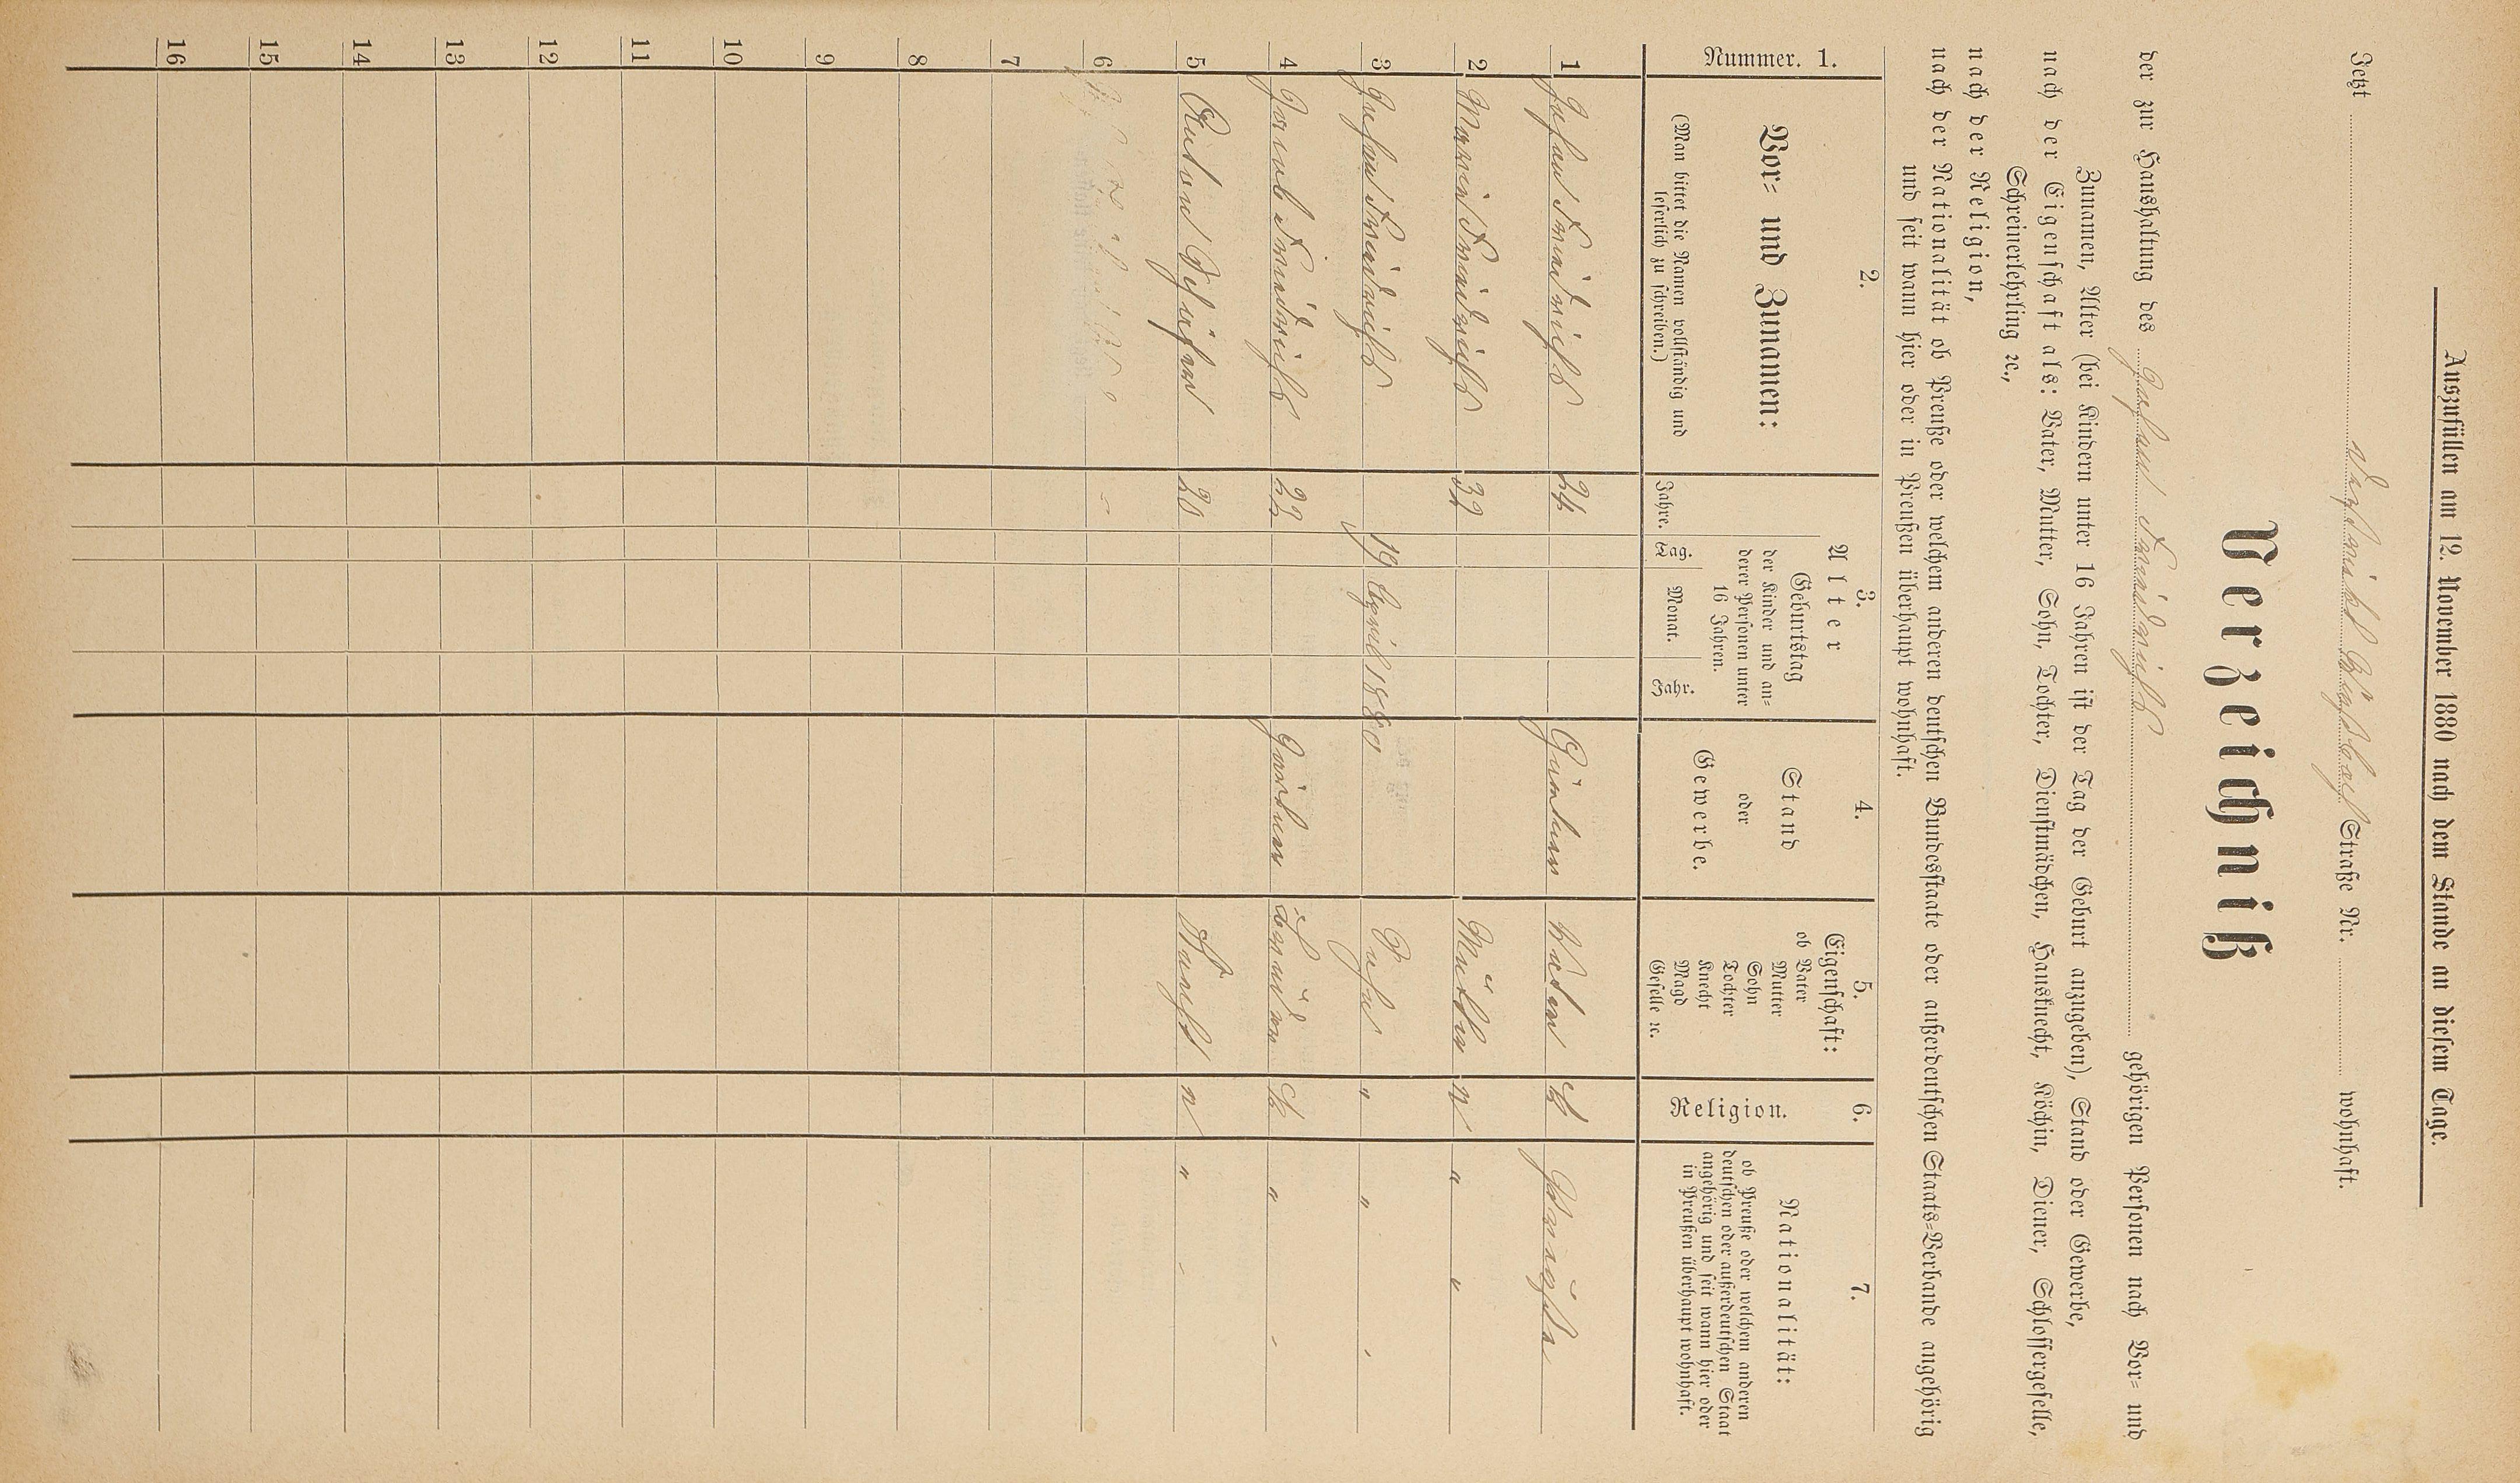 Auszufüllen am 12. November 1880 nach dem Stande an diesem Tage.
Jetzt Straße Nr. wohnhaft.
Verzeichniß
der zur Haushaltung des Johann Friedrichs gehörigen Personen nach Vor- und
Zunamen, Alter (bei Kindern unter 16 Jahren ist der Tag der Geburt anzugeben), Stand oder Gewerbe,
nach der Eigenschaft als: Vater, Mutter, Sohn, Tochter, Dienstmädchen, Hausknecht, Köchin, Diener, Schlossergeselle,
Schreinerlehrling ꝛc.,
nach der Religion,
nach der Nationalität ob Preuße oder welchem anderen deutschen Bundesstaate oder außerdeutschen Staats-Verbande angehörig
und seit wann hier oder in Preußen überhaupt wohnhaft.
Nummer. 1.
2.
Vor- und Zunamen:
(Man bittet die Namen vollständig und
leserlich zu schreiben.)
3.
Alter
Jahre.
Geburtstag
der Kinder und an-
derer Personen unter
16 Jahren.
Tag. Monat. Jahr.
4.
Stand
oder
Gewerbe.
5.
Eigenschaft:
ob Vater
Mutter
Sohn
Tochter
Knecht
Magd
Geselle ꝛc.
6.
Religion.
7.
Nationalität:
ob Preuße oder welchem anderen
deutschen oder außerdeutschen Staat
angehörig und seit wann hier oder
in Preußen überhaupt wohnhaft.
1 Johann Friedrichs 24 Gärtner Vater k
2 Maria Friedrichs 32 Mutter " " "
3 Johann Friedrichs 19 April 1880 Sohn " "
4 Jacob Friedrichs 22 Gärtner k "
5 Anton Schäfer 20 Knecht " "
6
7
8
9
10
11
12
13
14
15
16